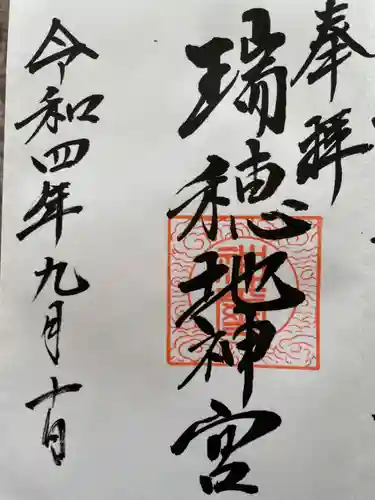 奉拝
瑞穂地神宮
令和四年九月十日